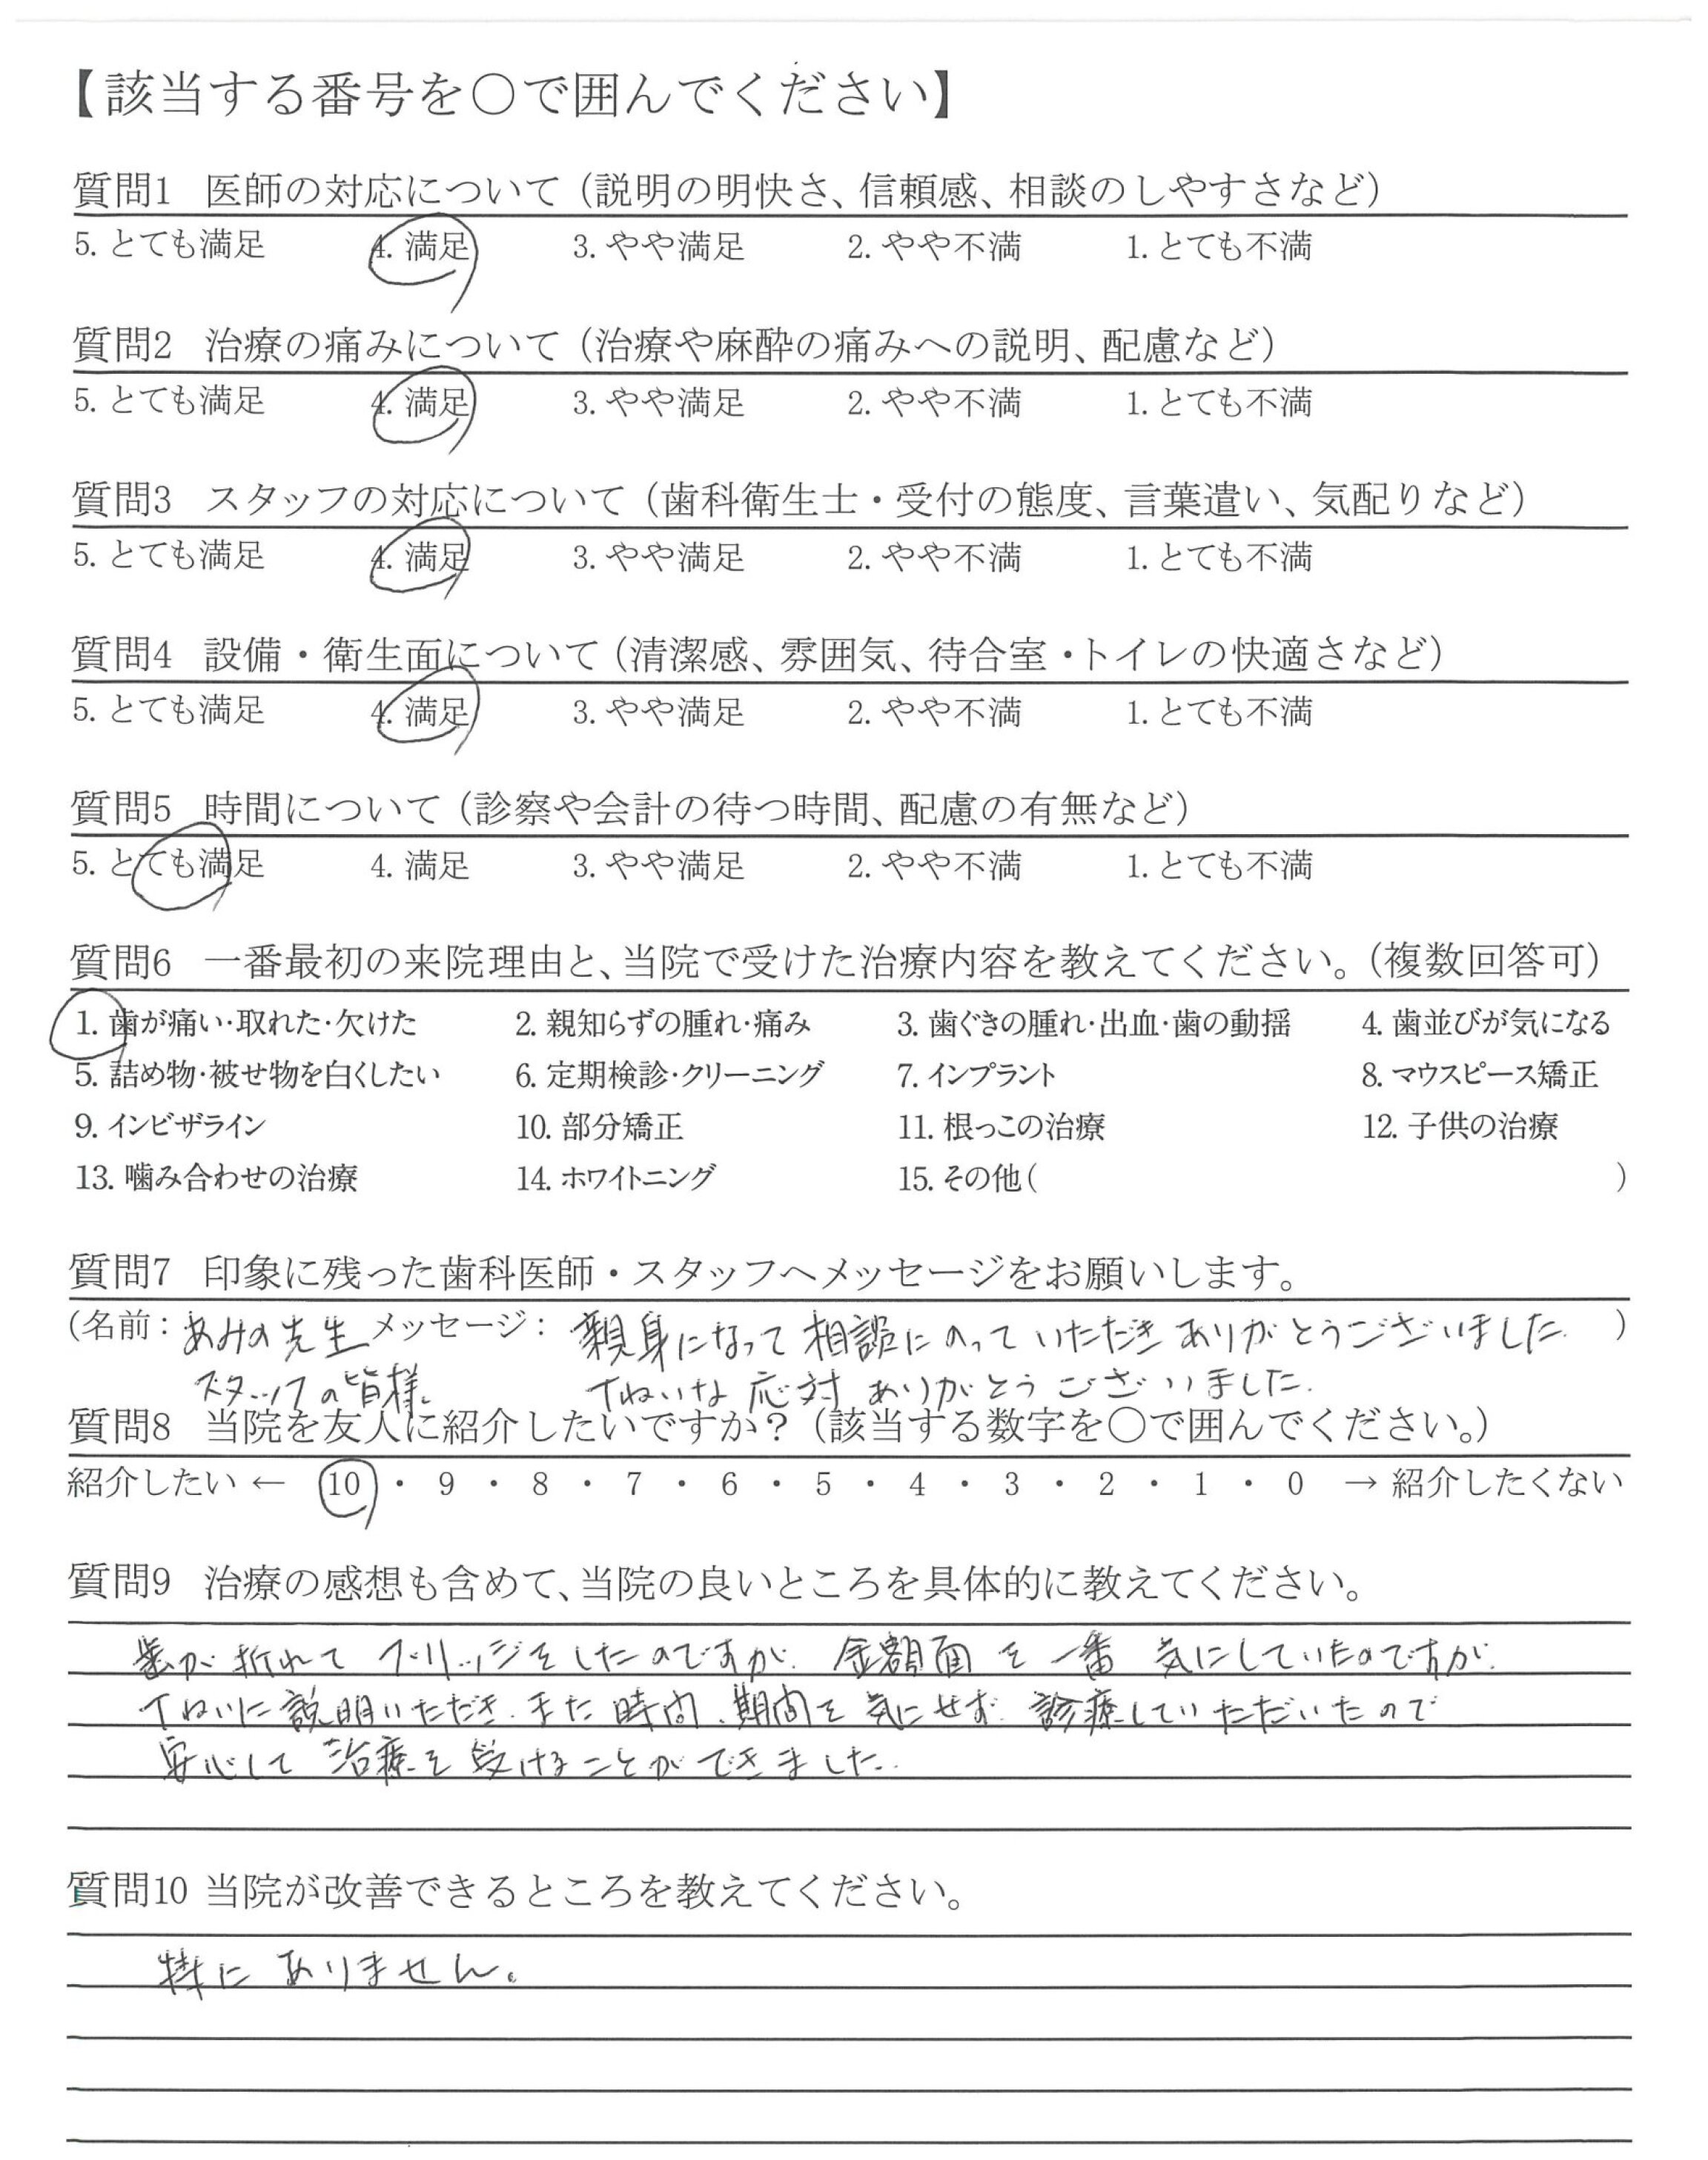 【該当する番号を〇で囲んでください】
質問1 医師の対応について（説明の明快さ、信頼感、相談のしやすさなど）
5. とても満足 4. 満足 3. やや満足 2. やや不満 1. とても不満
質問2 治療の痛みについて（治療や麻酔の痛みへの説明、配慮など）
5. とても満足 4. 満足 3. やや満足 2. やや不満 1. とても不満
質問3 スタッフの対応について（歯科衛生士・受付の態度、言葉遣い、気配りなど）
5. とても満足 4. 満足 3. やや満足 2. やや不満 1. とても不満
質問4 設備・衛生面について（清潔感、雰囲気、待合室・トイレの快適さなど）
5. とても満足 4. 満足 3. やや満足 2. やや不満 1. とても不満
質問5 時間について（診察や会計の待つ時間、配慮の有無など）
5. とても満足 4. 満足 3. やや満足 2. やや不満 1. とても不満
質問6 一番最初の来院理由と、当院で受けた治療内容を教えてください。（複数回答可）
1. 歯が痛い・取れた・欠けた 2. 親知らずの腫れ・痛み 3. 歯ぐきの腫れ・出血・歯の動揺 4. 歯並びが気になる
5. 詰め物・被せ物を白くしたい 6. 定期検診・クリーニング 7. インプラント 8. マウスピース矯正
9. インビザライン 10. 部分矯正 11. 根っこの治療 12. 子供の治療
13. 噛み合わせの治療 14. ホワイトニング 15. その他（ ）
質問7 印象に残った歯科医師・スタッフへメッセージをお願いします。
（名前：あみの先生 メッセージ：親身になって相談にのっていただきありがとうございました. ）
スタッフの皆様. ていねいな応対ありがとうございました.
質問8 当院を友人に紹介したいですか？（該当する数字を〇で囲んでください。）
紹介したい ← 10 ・ 9 ・ 8 ・ 7 ・ 6 ・ 5 ・ 4 ・ 3 ・ 2 ・ 1 ・ 0 → 紹介したくない
質問9 治療の感想も含めて、当院の良いところを具体的に教えてください。
歯が折れてブリッジをしたのですが、金額面を一番気にしていたのですが、
ていねいに説明いただき、また時間、期間を気にせず、診療していただいたので
安心して治療を受けることができました.
質問10 当院が改善できるところを教えてください。
特にありません。